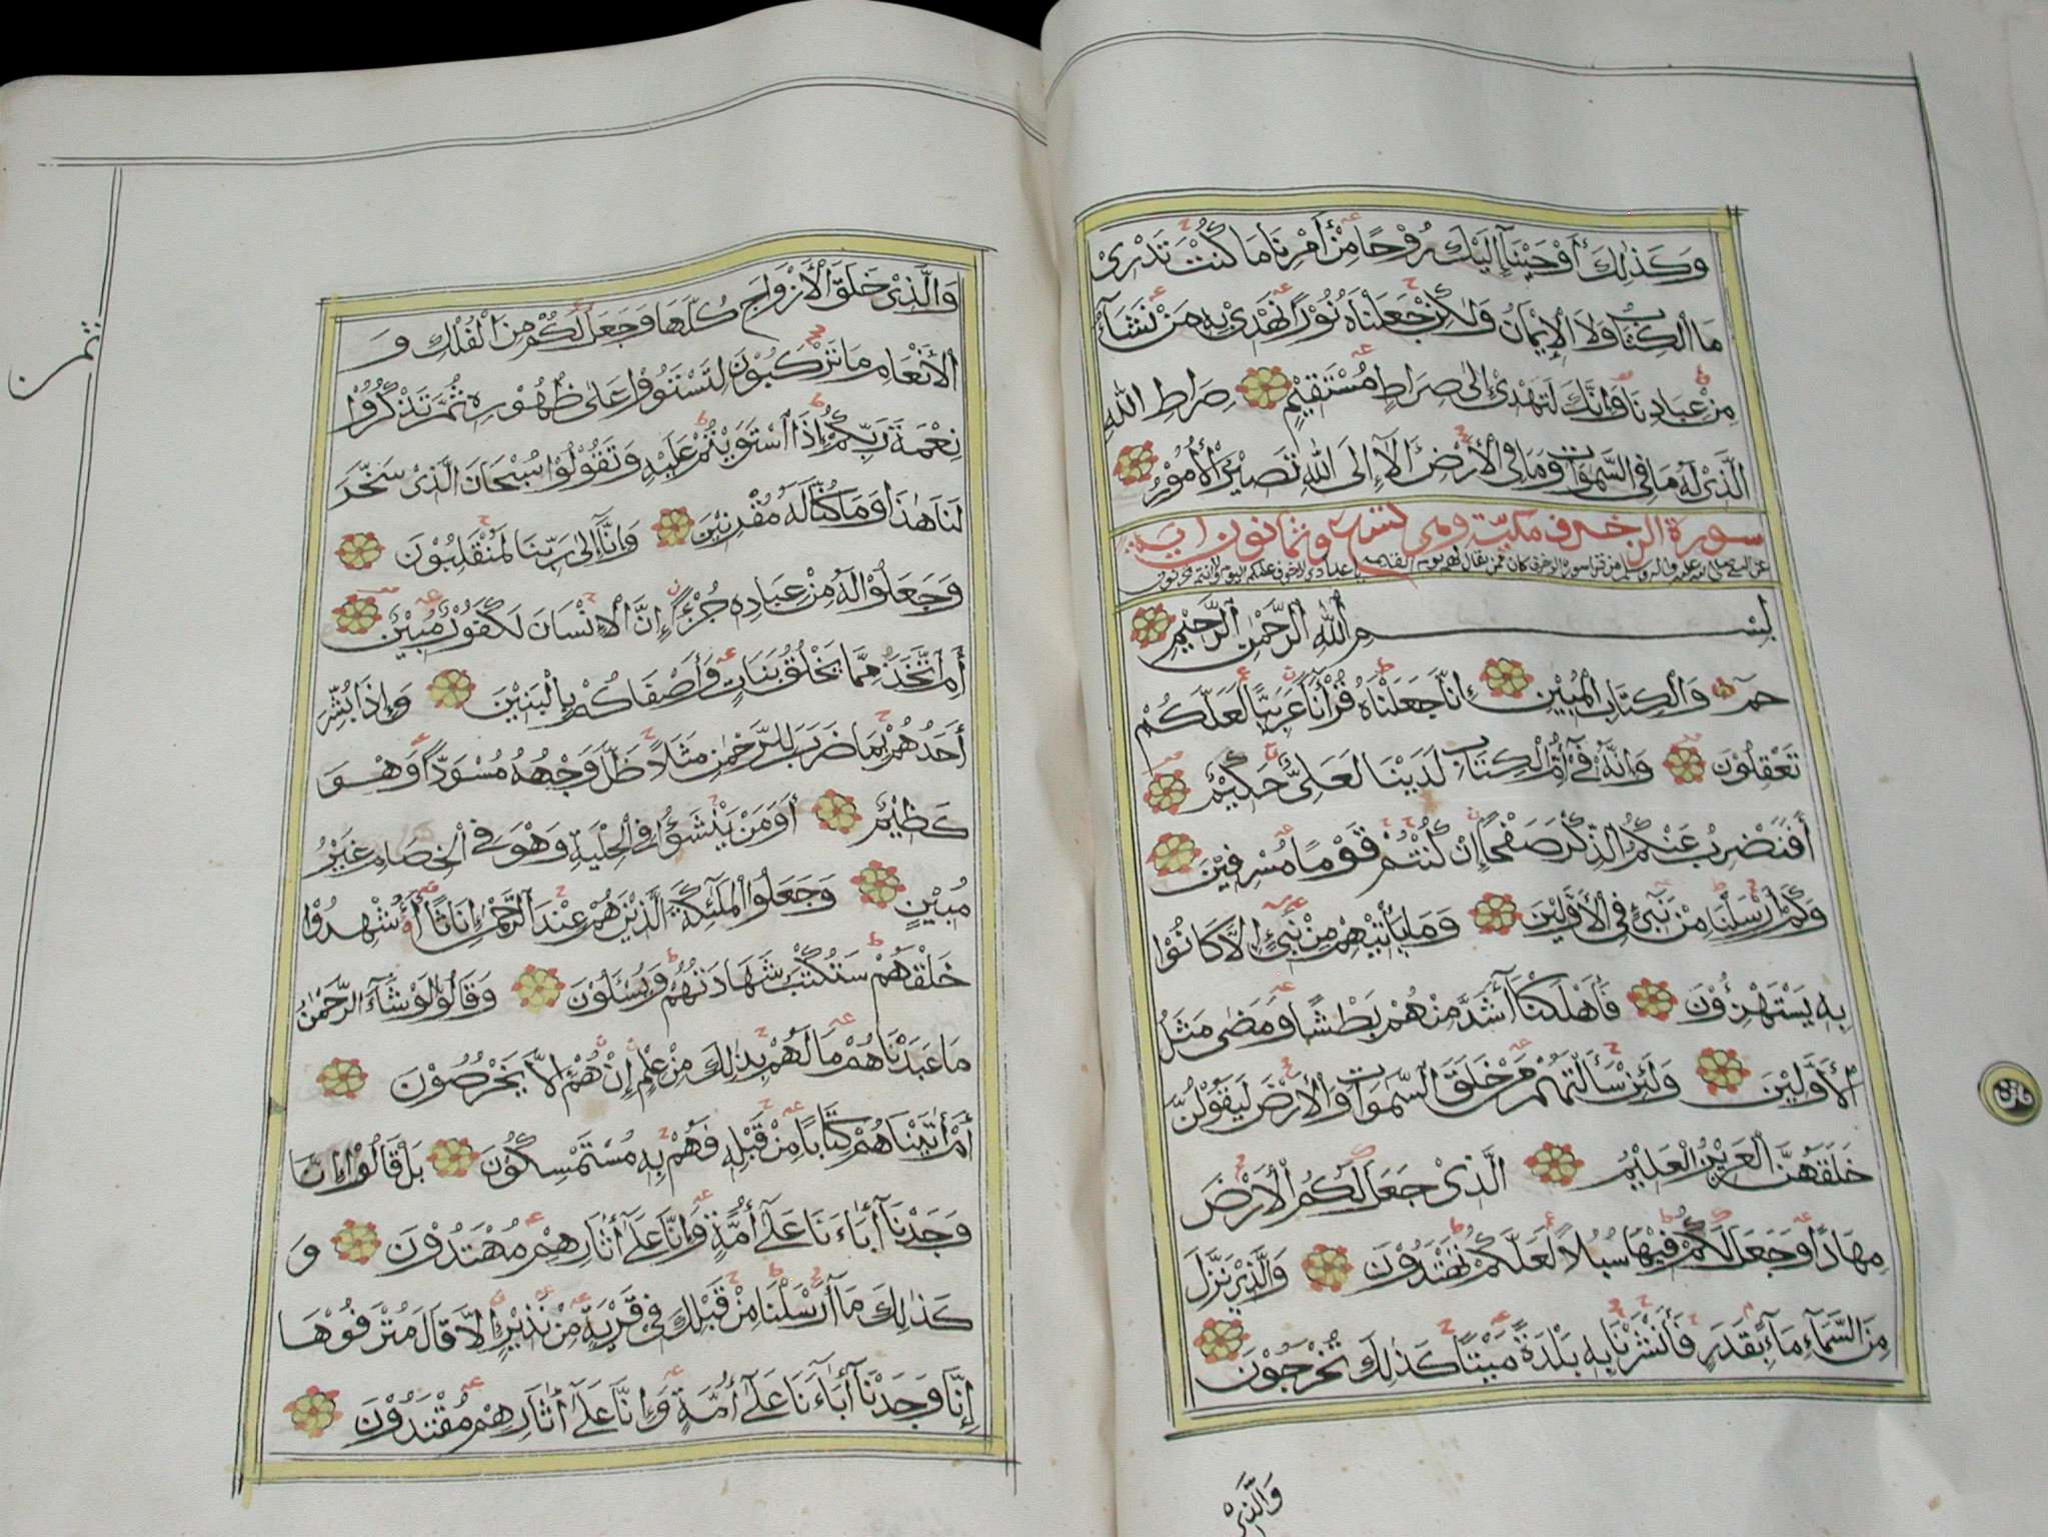 وَكَذٰلِكَ أَوْحَيْنَآ إِلَيْكَ رُوْحًا مِنْ أَمْرِنَا مَا كُنْتَ تَدْرِىْ
مَا الْكِتَابُ وَلاَ الْإِيْمَانُ وَلٰكِنْ جَعَلْنَاهُ نُوْرًا نَهْدِىْ بِهٖ مَنْ نَشَآءُ
مِنْ عِبَادِنَا وَإِنَّكَ لَتَهْدِىْ إِلىٰ صِرَاطٍ مُسْتَقِيْمٍ صِرَاطِ اللهِ
الَّذِىْ لَهُ مَا فِى السَّمٰوَاتِ وَمَا فِى الْأَرْضِ أَلآ إِلَى اللهِ تَصِيْرُ الْأُمُوْرُ
سورة الزخرف مكيّة وهى تسع وثمانون اية
عن النبي صلى الله عليه واله وسلم من قرا سورة الزخرف كان ممن يقال لهم يوم القيمة يا عبادي لا خوف عليكم اليوم ولا انتم تحزنون
بِسْمِ اللهِ الرَّحْمٰنِ الرَّحِيْمِ
حمٓ وَالْكِتَابِ الْمُبِيْنِ إِنَّا جَعَلْنَاهُ قُرْآنًا عَرَبِيًّا لَعَلَّكُمْ
تَعْقِلُوْنَ وَإِنَّهُ فِىْٓ أُمِّ الْكِتَابِ لَدَيْنَا لَعَلِىٌّ حَكِيْمٌ
أَفَنَضْرِبُ عَنْكُمُ الذِّكْرَ صَفْحًا إِنْ كُنْتُمْ قَوْمًا مُسْرِفِيْنَ
وَكَمْ أَرْسَلْنَا مِنْ نَبِىٍّ فِى الْأَوَّلِيْنَ وَمَا يَأْتِيْهِمْ مِنْ نَبِىٍّ إِلَّا كَانُوْا
بِهٖ يَسْتَهْزِءُوْنَ فَأَهْلَكْنَآ أَشَدَّ مِنْهُمْ بَطْشًا وَمَضٰى مَثَلُ
الْأَوَّلِيْنَ وَلَئِنْ سَأَلْتَهُمْ مَنْ خَلَقَ السَّمٰوَاتِ وَالْأَرْضَ لَيَقُوْلُنَّ
خَلَقَهُنَّ الْعَزِيْزُ الْعَلِيْمُ الَّذِىْ جَعَلَ لَكُمُ الْأَرْضَ
مِهَادًا وَجَعَلَ لَكُمْ فِيْهَا سُبُلاً لَعَلَّكُمْ تَهْتَدُوْنَ وَالَّذِىْ نَزَّلَ
مِنَ السَّمَآءِ مَآءً بِقَدَرٍ فَأَنْشَرْنَا بِهٖ بَلْدَةً مَيْتًا كَذٰلِكَ تُخْرَجُوْنَ
وَالَّذِىْ
وَالَّذِىْ خَلَقَ الْأَزْوَاجَ كُلَّهَا وَجَعَلَ لَكُمْ مِنَ الْفُلْكِ وَ
الْأَنْعَامِ مَا تَرْكَبُوْنَ لِتَسْتَوُوْا عَلىٰ ظُهُوْرِهٖ ثُمَّ تَذْكُرُوْا
نِعْمَةَ رَبِّكُمْ إِذَا اسْتَوَيْتُمْ عَلَيْهِ وَتَقُوْلُوْا سُبْحَانَ الَّذِىْ سَخَّرَ
لَنَا هٰذَا وَمَا كُنَّا لَهُ مُقْرِنِيْنَ وَإِنَّآ إِلىٰ رَبِّنَا لَمُنْقَلِبُوْنَ
وَجَعَلُوْا لَهُ مِنْ عِبَادِهٖ جُزْءًا إِنَّ الْإِنْسَانَ لَكَفُوْرٌ مُبِيْنٌ
أَمِ اتَّخَذَ مِمَّا يَخْلُقُ بَنَاتٍ وَأَصْفَاكُمْ بِالْبَنِيْنَ وَإِذَا بُشِّرَ
أَحَدُهُمْ بِمَا ضَرَبَ لِلرَّحْمٰنِ مَثَلاً ظَلَّ وَجْهُهُ مُسْوَدًّا وَهُوَ
كَظِيْمٌ أَوَمَنْ يُنَشَّؤُا فِى الْحِلْيَةِ وَهُوَ فِى الْخِصَامِ غَيْرُ
مُبِيْنٍ وَجَعَلُوا الْمَلٰٓئِكَةَ الَّذِيْنَ هُمْ عِنْدَ الرَّحْمٰنِ إِنَاثًا أَشَهِدُوْا
خَلْقَهُمْ سَتُكْتَبُ شَهَادَتُهُمْ وَيُسْئَلُوْنَ وَقَالُوْا لَوْ شَآءَ الرَّحْمٰنُ
مَا عَبَدْنَاهُمْ مَا لَهُمْ بِذٰلِكَ مِنْ عِلْمٍ إِنْ هُمْ إِلاَّ يَخْرُصُوْنَ
أَمْ اٰتَيْنَاهُمْ كِتَابًا مِنْ قَبْلِهٖ فَهُمْ بِهٖ مُسْتَمْسِكُوْنَ بَلْ قَالُوْا إِنَّا
وَجَدْنَآ اٰبَآءَنَا عَلٰٓى أُمَّةٍ وَإِنَّا عَلٰٓى اٰثَارِهِمْ مُهْتَدُوْنَ وَ
كَذٰلِكَ مَآ أَرْسَلْنَا مِنْ قَبْلِكَ فِى قَرْيَةٍ مِنْ نَذِيْرٍ إِلَّا قَالَ مُتْرَفُوْهَا
إِنَّا وَجَدْنَآ اٰبَآءَنَا عَلٰٓى أُمَّةٍ وَإِنَّا عَلٰٓى اٰثَارِهِمْ مُقْتَدُوْنَ
ثمن